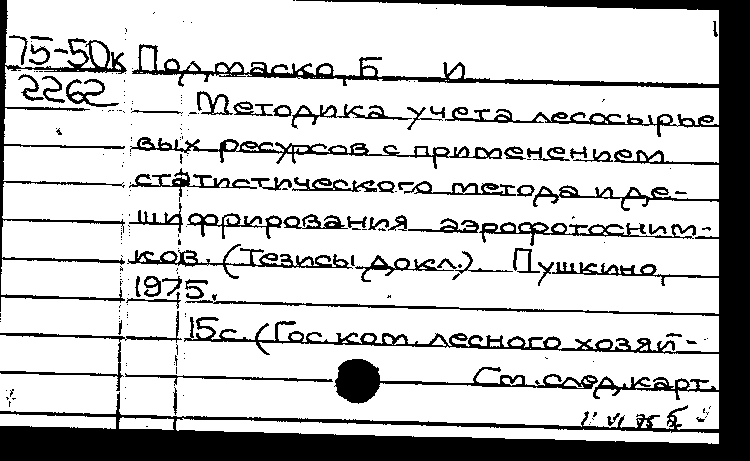 1
75-50к Подмаско, Б И
2262
Методика учета лесосырье
вых ресурсов с применением
статистического метода и де-
шифрирования аэрофотосним-
ков. (Тезисы докл.). Пушкино,
1975.
15с. (Гос. ком. лесного хозяй-
См. след. карт.
11 VI 75